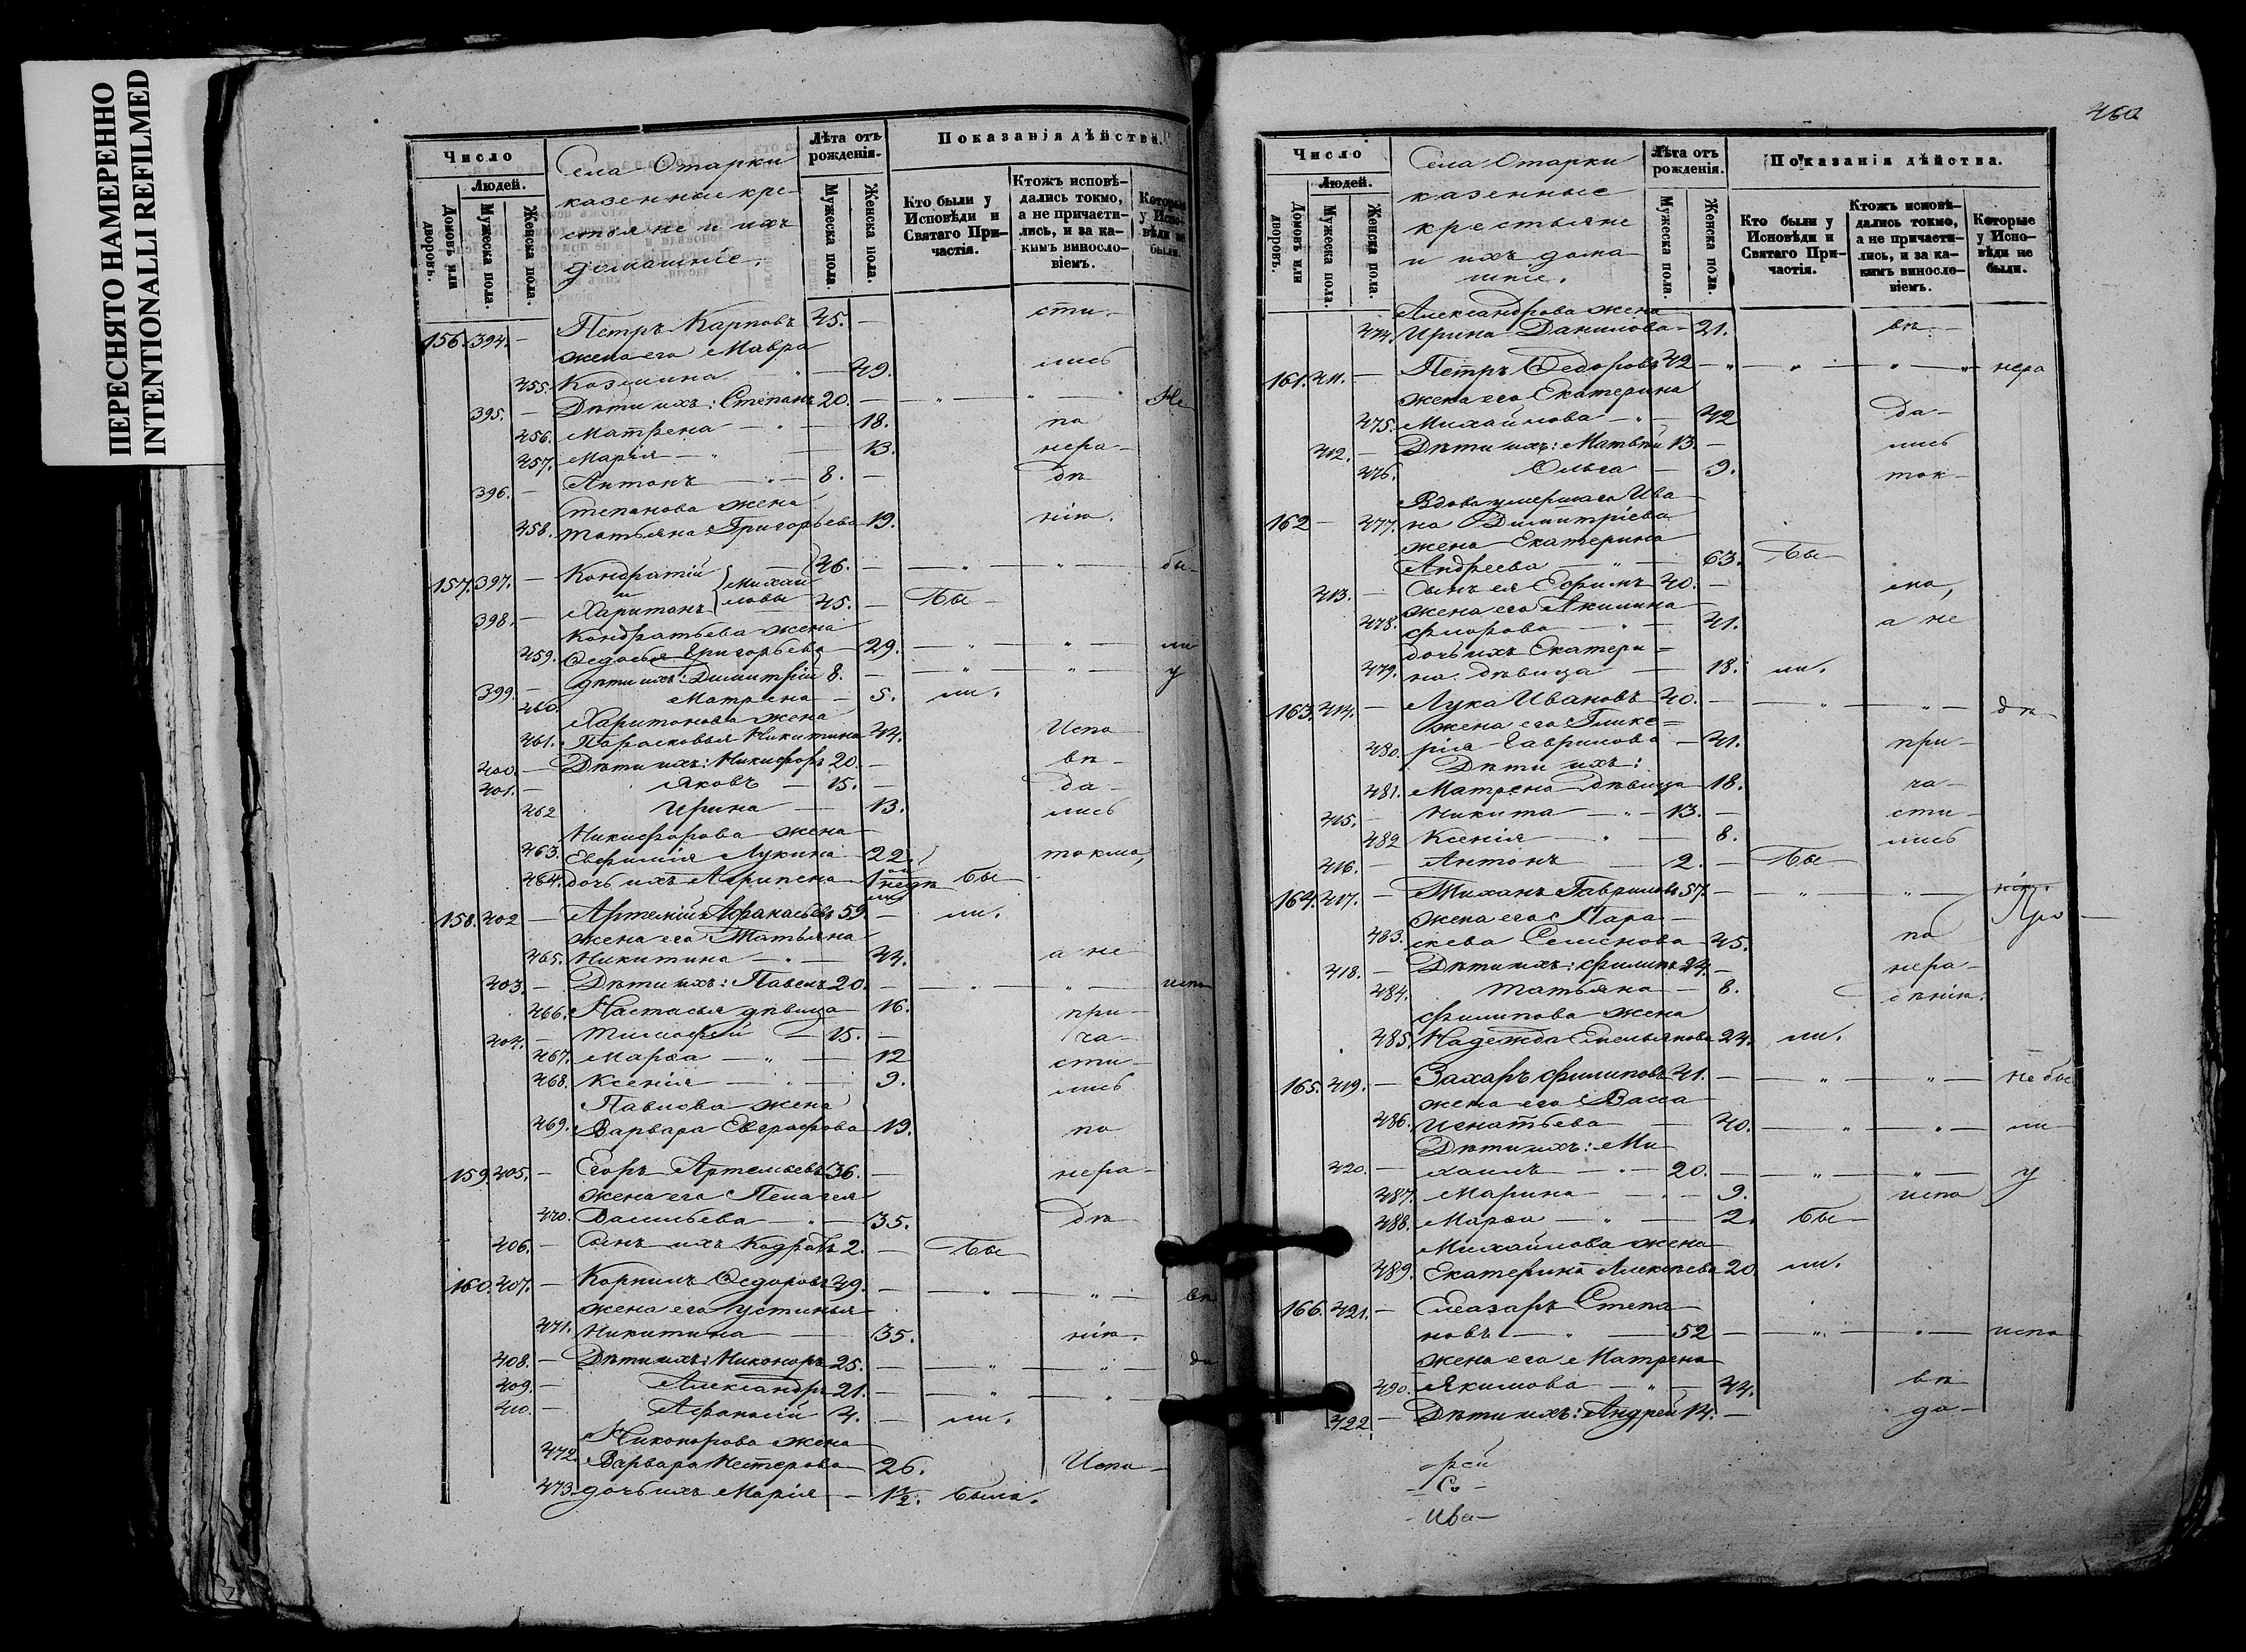 ПЕРЕСНЯТО НАМЕРЕННО
INTENTIONALLI REFILMED
Число
Людей.
Домовъ или дворовъ.
Мужеска пола.
Женска пола.
Села Отарки
казенные кре-
стьяне и ихъ
домашніе.
Лѣта отъ рожденія.
Мужеска пола.
Женска пола.
Показанія дѣйства.
Кто были у Исповѣди и Святаго При-частія.
Ктожъ исповѣ-дались токмо, а не причасти-лись, и за ка-кимъ винословіемъ.
Которые у Испо-вѣди не были.
156. 394. — Петръ Карповъ 45. — сти-
жена его Мавра
455. Козмина — 49. лись
395. — Дѣти ихъ: Степанъ 20. — Не
456. Матрена — 18. по
457. Марія — 13. нера-
396. — Антонъ — 8. — дѣ
Степанова жена
458. Татьяна Григорьева 19. нію.
157. 397. — Кондратій 46. — бы-
и Михайловы
398. — Харитонъ 45. — Бы-
Кондратьева жена
459. Ѳедосья Григорьева 29. — ли
399. — Дѣти ихъ: Димитрій 8. — у
460. Матрена — 5. ли.
Харитонова жена
461. Парасковья Никитина 44. Испо
400. — Дѣти ихъ: Никифоръ 20. — вѣ-
401. — Яковъ — 15. — да-
462 Ирина — 13. лись
Никифорова жена
463. Евфимія Лукина 22. токмо,
464. дочь ихъ Агрипена 1 нед. бы
158. 402 — Артемій Афанасьевъ 59. — ли.
жена его Татьяна
465. Никитина — 44. а не
403. — Дѣти ихъ: Павелъ 20. — испо
466. Настасья дѣвица 16. при-
404. — Тимофей — 15. — ча-
467. Марѳа — 12 сти-
468. Ксенія — 9. лись
Павлова жена
469. Варвара Евграфова 19. по
159. 405. — Егоръ Артемьевъ 36. — нера-
жена его Пелагея
470. Васильева — 35. дѣ-
406. — Сынъ ихъ Кодратъ 2. — Бы
160. 407. — Корнилъ Ѳедоровъ 49. — вѣ
жена его Устинья
471. Никитина — 35. нію.
408. — Дѣти ихъ: Никоноръ 25. — да
409. — Александръ 21. —
410. — Афанасій 4. — ли.
Никонорова жена
472. Варвара Нестерова 26. Испо-
473. дочь ихъ Марія — 1½. была.
460
Число
Людей.
Домовъ или дворовъ.
Мужеска пола.
Женска пола.
Села Отарки
казенные
крестьяне
и ихъ дома
шніе.
Лѣта отъ рожденія.
Мужеска пола.
Женска пола.
Показанія дѣйства.
Кто были у Исповѣди и Святаго При-частія.
Ктожъ исповѣ-дались токмо, а не причасти-лись, и за ка-кимъ винословіемъ.
Которые у Испо-вѣди не были.
Александрова жена
474. Ирина Данилова — 21. вѣ-
161. 411. — Петръ Ѳедоровъ 42 — нера
жена его Екатерина
475. Михайлова — 42 Да-
412. — Дѣти ихъ: Матвѣй 13. — лись
476. Ольга — 9. ток-
Вдова умершаго Ива
162 — 477. на Димитріева
жена Екатерина
Андреева — 63. Бы-
413. — Сынъ ея Ефимъ 40. — мо,
жена его Акилина
478. Флорова — 41. а не
дочь ихъ Екатери=
479. на дѣвица — 18. ли.
163. 414. — Лука Ивановъ 40. — дѣ
жена его Глике=
480. рія Гаврилова — 41. при-
Дѣти ихъ:
481. Матрена дѣвица 18. ча-
415. — Никита — 13. — сти-
482 Ксенія — 8. лись
416. — Антонъ — 2. — Бы-
164. 417. — Гавриловъ 57. — нію.
жена его Пара- Про-
483. скева Семенова 45. по
418. — Дѣти ихъ: Филипъ 24. — нера-
484. Татьяна — 8. дѣнію.
Филипова жена
485. Надежда Емельянова 24. ли.
165. 419. — Захаръ Филиповъ 41. — не бы
жена его Васса
486. Игнатьева — 40. — ли
Дѣти ихъ: Ми-
420. — хаилъ — 20. — у
487. Марина — 9. испо
488. Марѳа — 2. бы-
Михайлова жена
489. Екатерина Алексѣева 20. ли.
166. 421. — Елеазаръ Степа-
новъ — 52 — испо
жена его Матрена
490. Якимова — 44. вѣ
422. — Дѣти ихъ: Андрей 14. — да-
-рей
- Со -
- Ива -